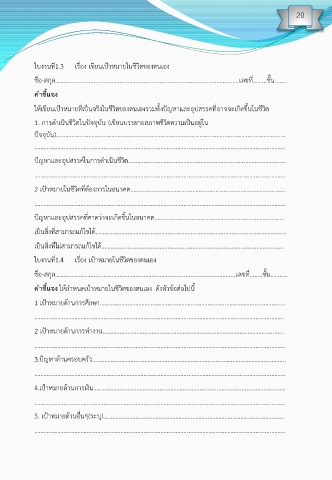 20
ใบงานที่1.3 เรื่อง เขียนเป้าหมายในชีวิตของตนเอง
ชื่อ-สกุล..........................................................................................เลขที่.......ชั้น.......
คำชี้แจง
ให้เขียนเป้าหมายที่เป็นจริงในชีวิตของตนเองรวมทั้งปัญหาและอุปสรรคที่อาจจะเกิดขึ้นในชีวิต
1. การดำเนินชีวิตในปัจจุบัน (เขียนบรรยายสภาพชีวิตความเป็นอยู่ใน
ปัจจุบัน)..........................................................................................
..........................................................................................
ปัญหาและอุปสรรคในการดำเนินชีวิต..........................................................................................
..........................................................................................
2 เป้าหมายในชีวิตที่ต้องการในอนาคต..........................................................................................
..........................................................................................
ปัญหาและอุปสรรคที่คาดว่าจะเกิดขึ้นในอนาคต..........................................................................................
เป็นสิ่งที่สามารถแก้ไขได้..........................................................................................
เป็นสิ่งที่ไม่สามารถแก้ไขได้..........................................................................................
ใบงานที่1.4 เรื่อง เป้าหมายในชีวิตของตนเอง
ชื่อ-สกุล..........................................................................................เลขที่.......ชั้น..........
คำชี้แจง ให้กำหนดเป้าหมายในชีวิตของตนเอง ดังหัวข้อต่อไปนี้
1 เป้าหมายด้านการศึกษา..........................................................................................
..........................................................................................
2 เป้าหมายด้านการทำงาน..........................................................................................
..........................................................................................
3.ปัญหาด้านครอบครัว..........................................................................................
..........................................................................................
4.เป้าหมายด้านการเงิน..........................................................................................
..........................................................................................
5. เป้าหมายด้านอื่นๆ(ระบุ)..........................................................................................
..........................................................................................